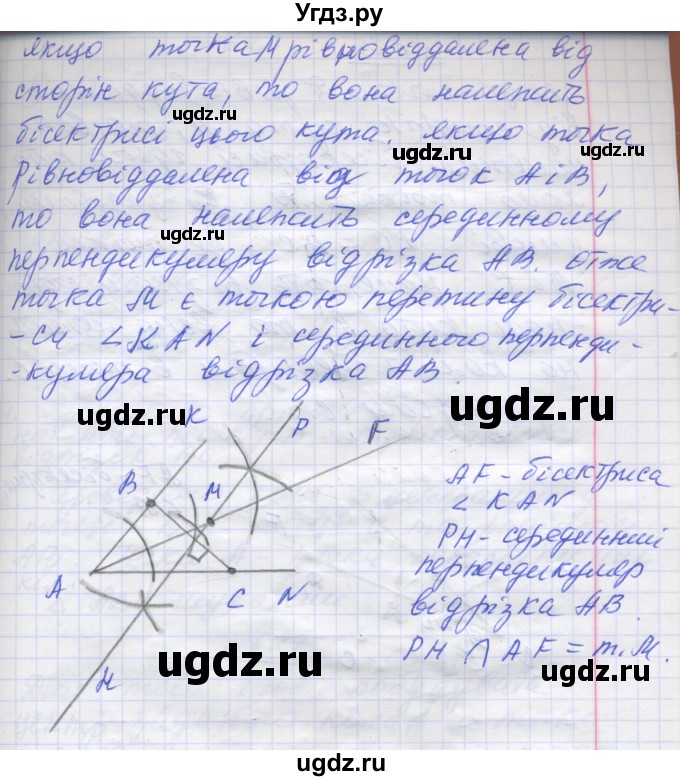 Угдз.ру
якщо точка М рівновіддалена від
сторін кута, то вона належить
ugdz.ru
бісектрисі цього кута, якщо точка
ugdz.ru
рівновіддалена від точок А і В,
то вона належить серединному
ugdz.ru
перпендикуляру відрізка АВ. Отже
точка М є точкою перетину бісектри-
-си ∠KAN і серединного перпенди-
-куляра відрізка АВ.
ugdz.ru
K
P
F
B
M
A
C
N
H
AF - бісектриса
∠KAN
PH - серединний
перпендикуляр
відрізка АВ.
PH ∩ AF = т.М.
ugdz.ru
ugdz.ru
ugdz.ru
ugdz.ru
ugdz.ru